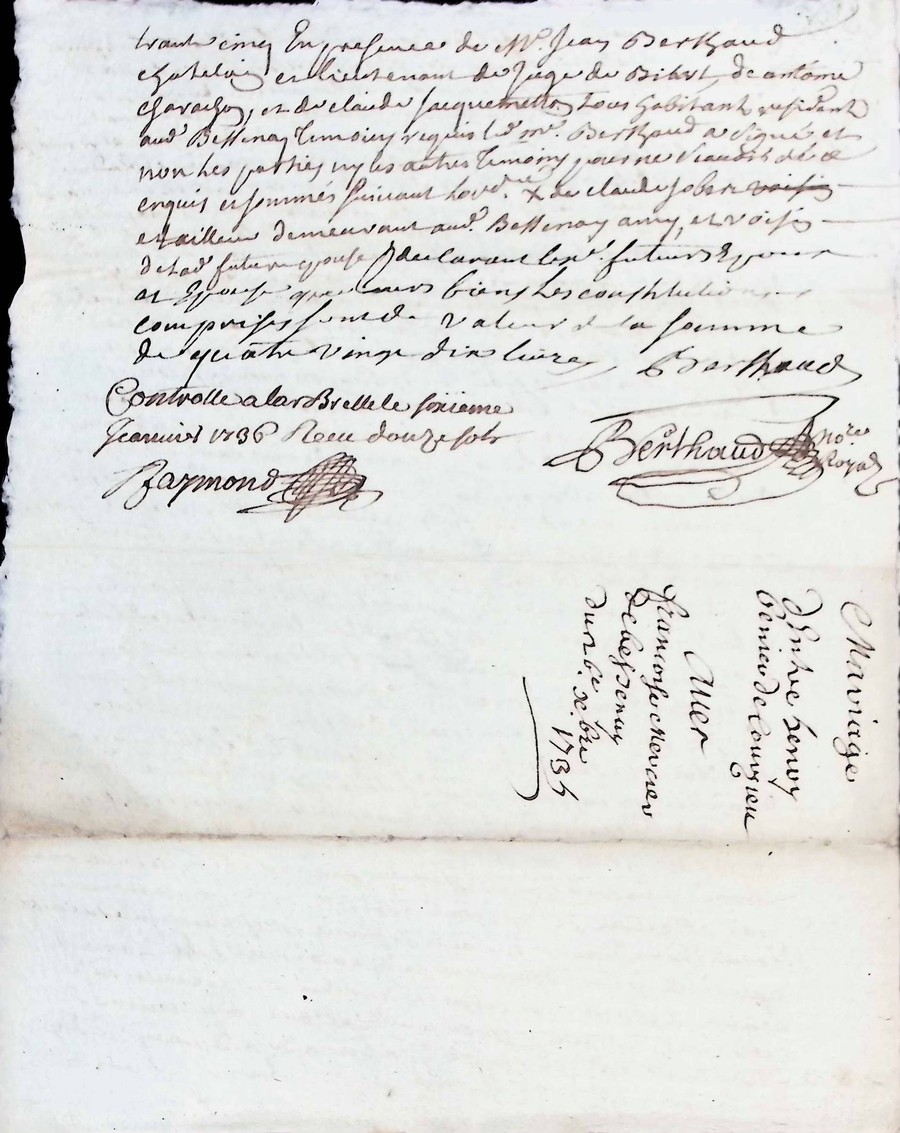 trante cinq En presence de Mr. Jean Berthaud
chatelain et lieutenant de Juge de Bibost, de antoine
et de claude Jacquemetton tous habitant residant
aud. Bessenay temoins requis led. mr. Berthaud a signé et
non les parties ny les autres temoins pour ne scavoir de ce
enquis et sommés suivant l'ord.ce x de claude voisin
et tailleur demeurant aud. Bessenay amy, et voisin
de lad. future epouse declarant les d. futurs Epoux
et Epouse que leurs biens les constitutions
comprises sont de valeur de la somme
de quatre vingt dix livres Berthaud
Controllé a larBrelle le sixieme
Jeanvier 1736 Receu douze sols
Raymond
Berthaud Nore Royal
Mariage
d'Entre benoy
de Couzieu
Avec
francoise Mercier
de bessenay
du 26e xbre
1735